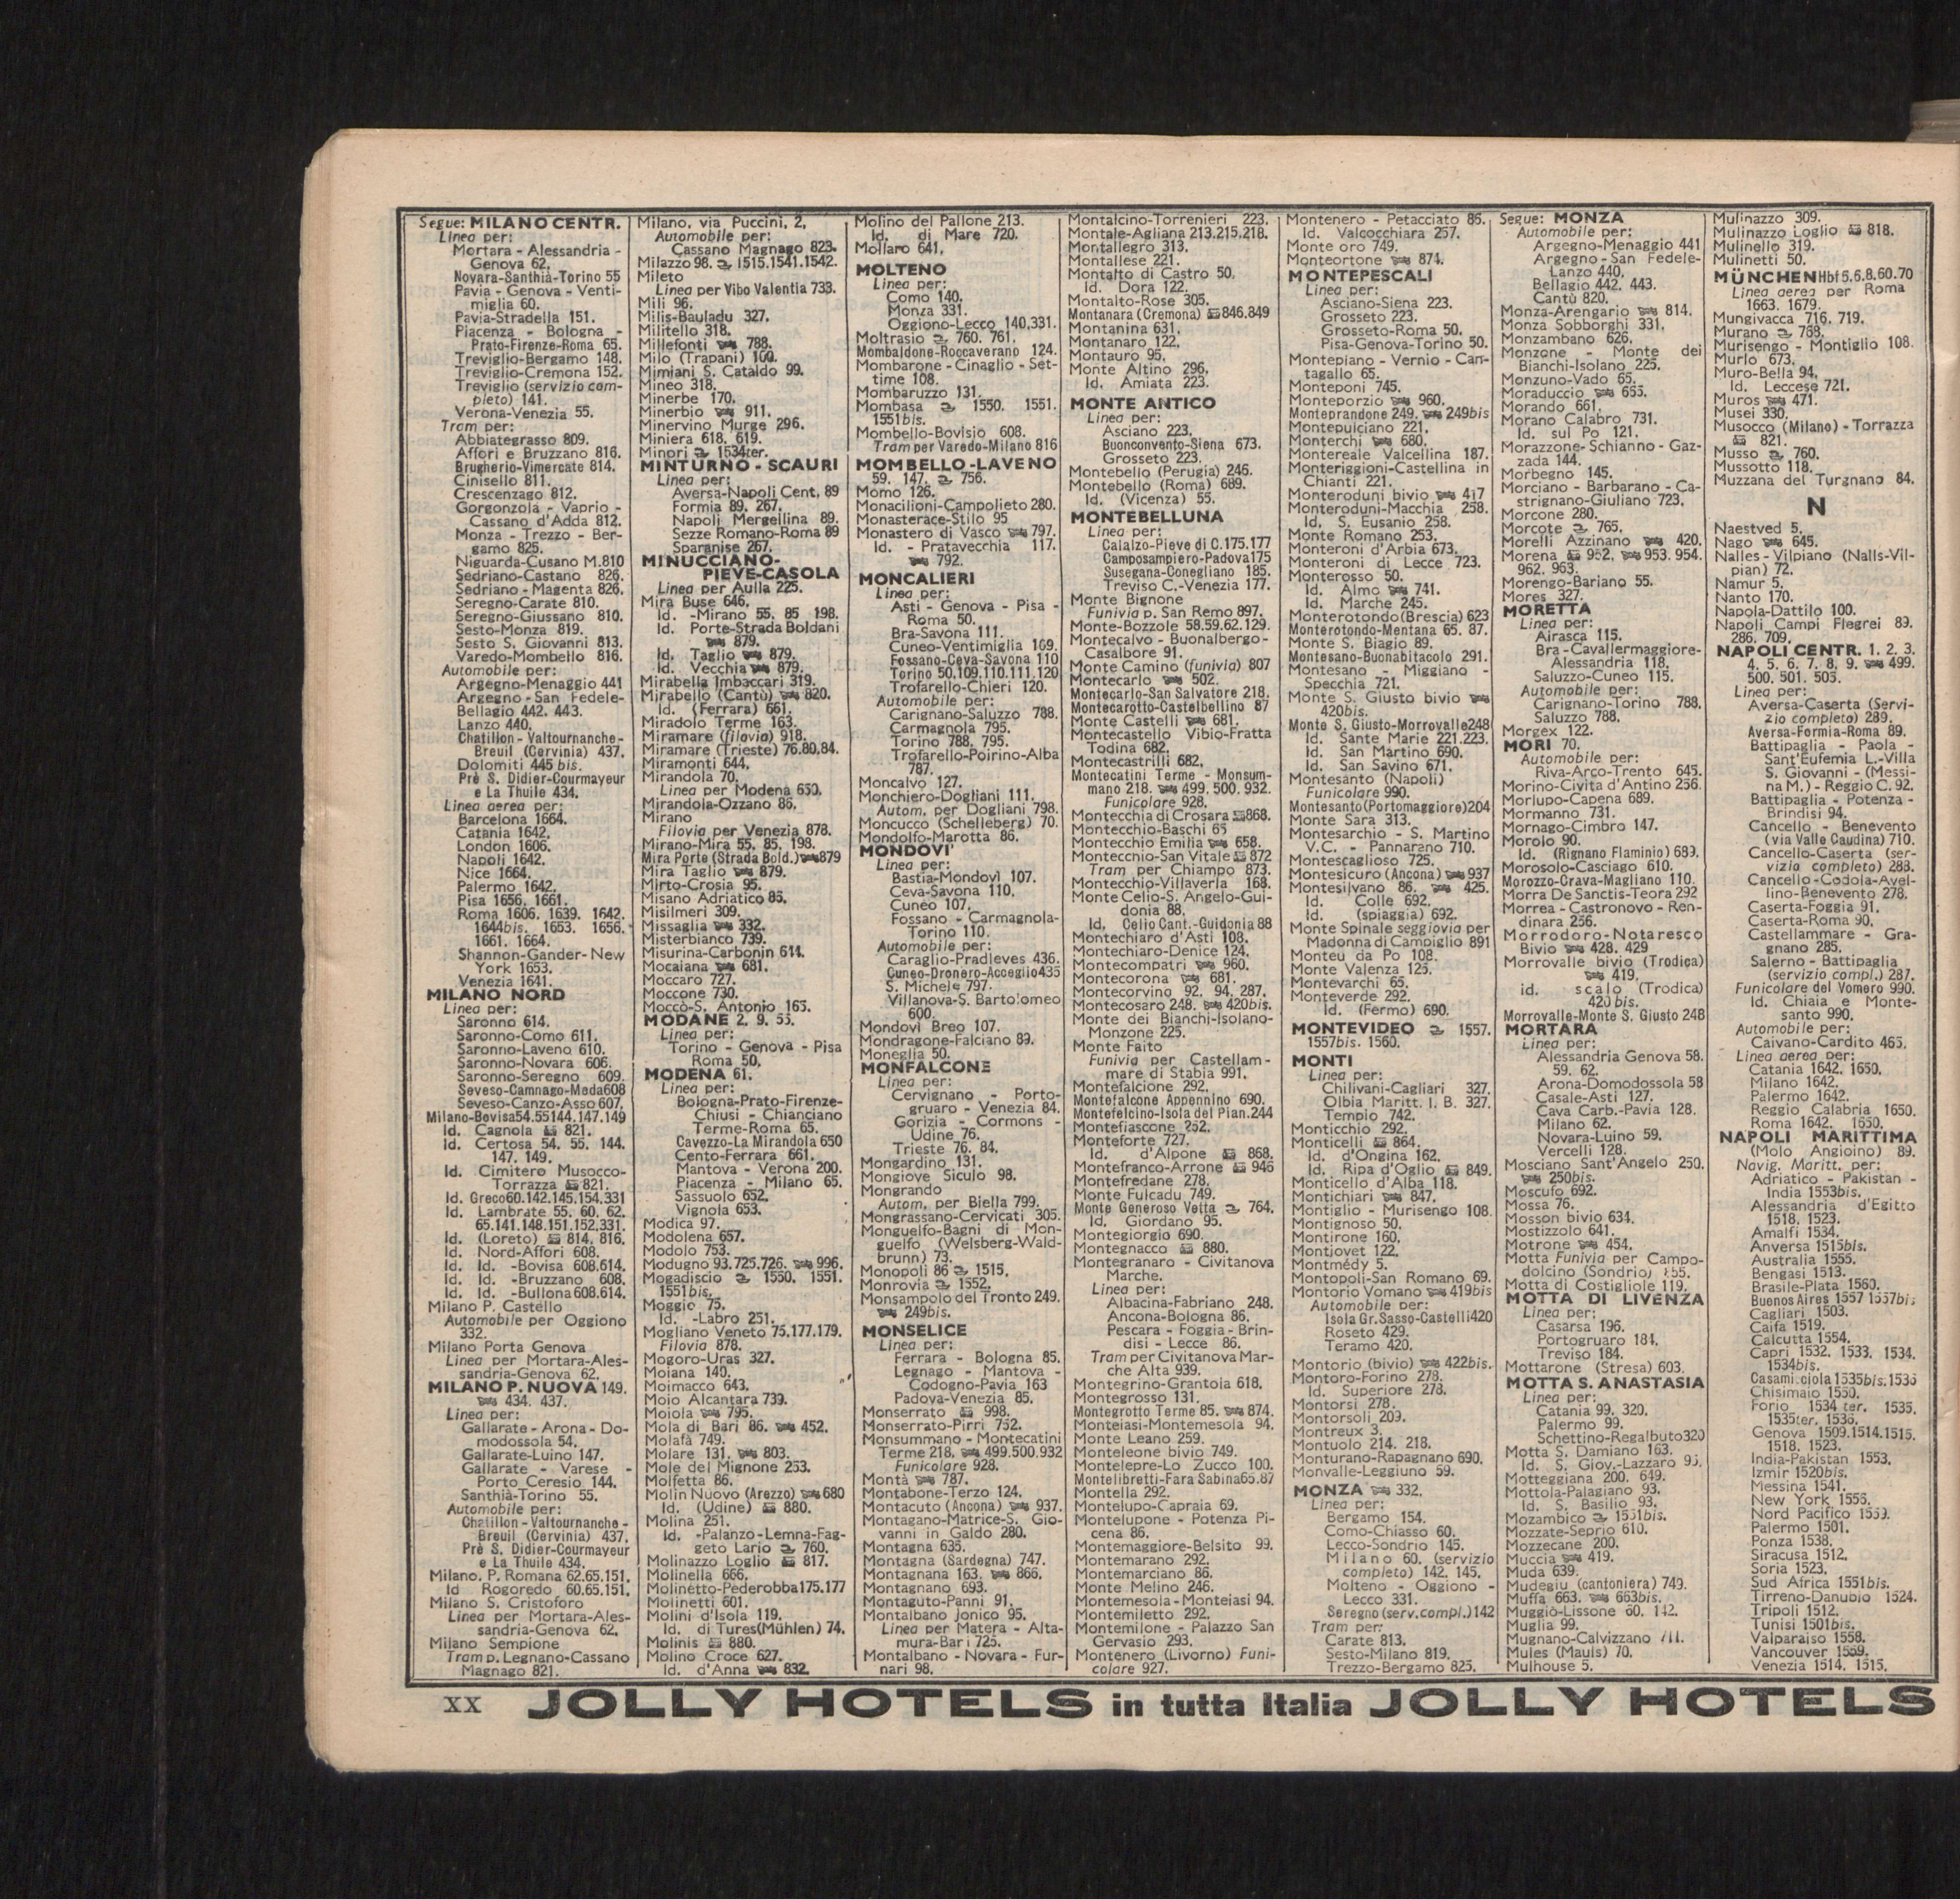 Segue: MILANO CENTR.
Linea per:
Mortara - Alessandria -
Genova 62.
Novara-Santhià-Torino 55
Pavia - Genova - Venti-
miglia 60.
Pavia-Stradella 151.
Piacenza - Bologna -
Prato-Firenze-Roma 65.
Treviglio-Bergamo 148.
Treviglio-Cremona 152.
Treviglio (servizio com-
pleto) 141.
Verona-Venezia 55.
Tram per:
Abbiategrasso 809.
Affori e Bruzzano 816.
Brugherio-Vimercate 814.
Cinisello 811.
Crescenzago 812.
Gorgonzola - Vaprio -
Cassano d'Adda 812.
Monza - Trezzo - Ber-
gamo 825.
Niguarda-Cusano M.810
Sedriano-Castano 826.
Sedriano - Magenta 826.
Seregno-Carate 810.
Seregno-Giussano 810.
Sesto-Monza 819.
Sesto S. Giovanni 813.
Varedo-Mombello 816.
Automobile per:
Argegno-Menaggio 441
Argegno - San Fedele-
Bellagio 442. 443.
Lanzo 440.
Chatillon - Valtournanche-
Breuil (Cervinia) 437.
Dolomiti 445 bis.
Pré S. Didier-Courmayeur
e La Thuile 434.
Linea aerea per:
Barcelona 1664.
Catania 1642.
London 1606.
Napoli 1642.
Nice 1664.
Palermo 1642.
Pisa 1656. 1661.
Roma 1606. 1639. 1642.
1644bis. 1653. 1656.
1661. 1664.
Shannon-Gander-New
York 1653.
Venezia 1641.
MILANO NORD
Linea per:
Saronno 614.
Saronno-Como 611.
Saronno-Laveno 610.
Saronno-Novara 606.
Saronno-Seregno 609.
Seveso-Camnago-Meda608
Seveso-Canzo-Asso 607.
Milano-Bovisa54.55144.147.149
Id. Cagnola 821.
Id. Certosa 54. 55. 144.
147. 149.
Id. Cimitero Musocco-
Torrazza 821.
Id. Greco60.142.145.154.331
Id. Lambrate 55. 60. 62.
65.141.148.151.152.331.
Id. (Loreto) 814. 816.
Id. Nord-Affori 608.
Id. Id. -Bovisa 608.614.
Id. Id. -Bruzzano 608.
Id. Id. -Bullona 608.614.
Milano P. Castello
Automobile per Oggiono
332.
Milano Porta Genova
Linea per Mortara-Ales-
sandria-Genova 62.
MILANO P. NUOVA 149.
434. 437.
Linea per:
Gallarate - Arona - Do-
modossola 54.
Gallarate-Luino 147.
Gallarate - Varese -
Porto Ceresio 144.
Santhià-Torino 55.
Automobile per:
Chatillon - Valtournanche -
Breuil (Cervinia) 437.
Pré S. Didier-Courmayeur
e La Thuile 434.
Milano. P. Romana 62.65.151.
Id Rogoredo 60.65.151.
Milano S. Cristoforo
Linea per Mortara-Ales-
sandria-Genova 62.
Milano Sempione
Tram p. Legnano-Cassano
Magnago 821.
Milano, via Puccini, 2,
Automobile per:
Cassano Magnago 823.
Milazzo 98. 1515.1541.1542.
Mileto
Linea per Vibo Valentia 733.
Mili 96.
Milis-Bauladu 327.
Militello 318.
Millefonti 788.
Milo (Trapani) 100.
Mimiani S. Cataldo 99.
Mineo 318.
Minerbe 170.
Minerbio 911.
Minervino Murge 296.
Miniera 618. 619.
Minori 1534ter.
MINTURNO - SCAURI
Linea per:
Aversa-Napoli Cent. 89
Formia 89. 267.
Napoli Mergellina 89.
Sezze Romano-Roma 89
Sparanise 267.
MINUCCIANO-
PIEVE-CASOLA
Linea per Aulla 225.
Mira Buse 646.
Id. -Mirano 55. 85 198.
Id. Porte-Strada Boldani
879.
Id. Taglio 879.
Id. Vecchia 879.
Mirabella Imbaccari 319.
Mirabello (Cantù) 820.
Id. (Ferrara) 661.
Miradolo Terme 163.
Miramare (filovia) 918.
Miramare (Trieste) 76.80.84.
Miramonti 644.
Mirandola 70.
Linea per Modena 650.
Mirandola-Ozzano 86.
Mirano
Filovia per Venezia 878.
Mirano-Mira 55. 85. 198.
Mira Porte (Strada Bold.) 879
Mira Taglio 879.
Mirto-Crosia 95.
Misano Adriatico 86.
Misilmeri 309.
Missaglia 332.
Misterbianco 739.
Misurina-Carbonin 614.
Mocaiana 681.
Moccaro 727.
Moccone 730.
Moccò-S. Antonio 165.
MODANE 2. 9. 55.
Linea per:
Torino - Genova - Pisa
Roma 50.
MODENA 61.
Linea per:
Bologna-Prato-Firenze-
Chiusi - Chianciano
Terme-Roma 65.
Cavezzo-La Mirandola 650
Cento-Ferrara 661.
Mantova - Verona 200.
Piacenza - Milano 65.
Sassuolo 652.
Vignola 653.
Modica 97.
Modolena 657.
Modolo 753.
Modugno 93.725.726. 996.
Mogadiscio 1550. 1551.
1551bis.
Moggio 75.
Id. -Labro 251.
Mogliano Veneto 75.177.179.
Filovia 878.
Mogoro-Uras 327.
Moiana 140.
Moimacco 643.
Moio Alcantara 739.
Moiola 795.
Mola di Bari 86. 452.
Molafà 749.
Molare 131. 803.
Mole del Mignone 253.
Molfetta 86.
Molin Nuovo (Arezzo) 680
Id. (Udine) 880.
Molina 251.
Id. -Palanzo-Lemna-Fag-
geto Lario 760.
Molinazzo Loglio 817.
Molinella 666.
Molinetto-Pederobba175.177
Molinetti 601.
Molini d'Isola 119.
Id. di Tures(Mühlen) 74.
Molinis 880.
Molino Croce 627.
Id. d'Anna 832.
Molino del Pallone 213.
Id. di Mare 720.
Mollaro 641.
MOLTENO
Linea per:
Como 140.
Monza 331.
Oggiono-Lecco 140.331.
Moltrasio 760. 761.
Mombaldone-Roccaverano 124.
Mombarone - Cinaglio - Set-
time 108.
Mombaruzzo 131.
Mombasa 1550. 1551.
1551bis.
Mombello-Bovisio 608.
Tram per Varedo-Milano 816
MOMBELLO-LAVENO
59. 147. 756.
Momo 126.
Monacilioni-Campolieto 280.
Monasterace-Stilo 95
Monastero di Vasco 797.
Id. - Pratavecchia 117.
792.
MONCALIERI
Linea per:
Asti - Genova - Pisa -
Roma 50.
Bra-Savona 111.
Cuneo-Ventimiglia 169.
Fossano-Ceva-Savona 110
Torino 50.109.110.111.120
Trofarello-Chieri 120.
Automobile per:
Carignano-Saluzzo 788.
Carmagnola 795.
Torino 788. 795.
Trofarello-Poirino-Alba
787.
Moncalvo 127.
Monchiero-Dogliani 111.
Autom. per Dogliani 798.
Moncucco (Schelleberg) 70.
Mondolfo-Marotta 86.
MONDOVI'
Linea per:
Bastia-Mondovì 107.
Ceva-Savona 110.
Cuneo 107.
Fossano - Carmagnola-
Torino 110.
Automobile per:
Caraglio-Pradleves 436.
Cuneo-Dronero-Acceglio435
S. Michele 797.
Villanova-S. Bartolomeo
600.
Mondovì Breo 107.
Mondragone-Falciano 89.
Moneglia 50.
MONFALCONE
Linea per:
Cervignano - Porto-
gruaro - Venezia 84.
Gorizia - Cormons -
Udine 76.
Trieste 76. 84.
Mongardino 131.
Mongiove Siculo 98.
Mongrando
Autom. per Biella 799.
Mongrassano-Cervicati 305.
Monguelfo-Bagni di Mon-
guelfo (Welsberg-Wald-
brunn) 73.
Monopoli 86 1515.
Monrovia 1552.
Monsampolo del Tronto 249.
249bis.
MONSELICE
Linea per:
Ferrara - Bologna 85.
Legnago - Mantova -
Codogno-Pavia 163
Padova-Venezia 85.
Monserrato 998.
Monserrato-Pirri 752.
Monsummano - Montecatini
Terme 218. 499.500.932
Funicolare 928.
Montà 787.
Montabone-Terzo 124.
Montacuto (Ancona) 937.
Montagano-Matrice-S. Gio-
vanni in Galdo 280.
Montagna 635.
Montagna (Sardegna) 747.
Montagnana 163. 866.
Montagnano 693.
Montaguto-Panni 91.
Montalbano Jonico 95.
Linea per Matera - Alta-
mura-Bari 725.
Montalbano - Novara - Fur-
nari 98.
Montalcino-Torrenieri 223.
Montale-Agliana 213.215.218.
Montallegro 313.
Montallese 221.
Montalto di Castro 50.
Id. Dora 122.
Montalto-Rose 305.
Montanara (Cremona) 846.849
Montanina 631.
Montanaro 122.
Montauro 95.
Monte Altino 296.
Id. Amiata 223.
MONTE ANTICO
Linea per:
Asciano 223.
Buonconvento-Siena 673.
Grosseto 223.
Montebello (Perugia) 246.
Montebello (Roma) 689.
Id. (Vicenza) 55.
MONTEBELLUNA
Linea per:
Calalzo-Pieve di C.175.177
Camposampiero-Padova175
Susegana-Conegliano 185.
Treviso C.-Venezia 177.
Monte Bignone
Funivia p. San Remo 897.
Monte-Bozzole 58.59.62.129.
Montecalvo - Buonalbergo-
Casalbore 91.
Monte Camino (funivia) 807
Montecarlo 502.
Montecarlo-San Salvatore 218.
Montecarotto-Castelbellino 87
Monte Castelli 681.
Montecastello Vibio-Fratta
Todina 682.
Montecastrilli 682.
Montecatini Terme - Monsum-
mano 218. 499. 500. 932.
Funicolare 928.
Montecchia di Crosara 868.
Montecchio-Baschi 65
Montecchio Emilia 658.
Montecchio-San Vitale 872
Tram per Chiampo 873.
Montecchio-Villaverla 168.
Monte Celio-S. Angelo-Gui-
donia 88.
Id. Celio Cant.-Guidonia 88
Montechiaro d'Asti 108.
Montechiaro-Denice 124.
Montecompatri 960.
Montecorona 681.
Montecorvino 92. 94. 287.
Montecosaro 248. 420bis.
Monte dei Bianchi-Isolano-
Monzone 225.
Monte Faito
Funivia per Castellam-
mare di Stabia 991.
Montefalcione 292.
Montefalcone Appennino 690.
Montefelcino-Isola del Pian.244
Montefiascone 252.
Monteforte 727.
Id. d'Alpone 868.
Montefranco-Arrone 946
Montefredane 278.
Monte Fulcadu 749.
Monte Generoso Vetta 764.
Id. Giordano 95.
Montegiorgio 690.
Montegnacco 880.
Montegranaro - Civitanova
Marche.
Linea per:
Albacina-Fabriano 248.
Ancona-Bologna 86.
Pescara - Foggia - Brin-
disi - Lecce 86.
Tram per Civitanova Mar-
che Alta 939.
Montegrino-Grantola 618.
Montegrosso 131.
Montegrotto Terme 85. 874.
Monteiasi-Montemesola 94.
Monte Leano 259.
Monteleone bivio 749.
Montelepre-Lo Zucco 100.
Montelibretti-Fara Sabina65.87
Montella 292.
Montelupo-Capraia 69.
Montelupone - Potenza Pi-
cena 86.
Montemaggiore-Belsito 99.
Montemarano 292.
Montemarciano 86.
Monte Melino 246.
Montemesola-Monteiasi 94.
Montemiletto 292.
Montemilone - Palazzo San
Gervasio 293.
Montenero (Livorno) Funi-
colare 927.
Montenero - Petacciato 86.
Id. Valcocchiara 257.
Monte oro 749.
Monteortone 874.
MONTEPESCALI
Linea per:
Asciano-Siena 223.
Grosseto 223.
Grosseto-Roma 50.
Pisa-Genova-Torino 50.
Montepiano - Vernio - Can-
tagallo 65.
Monteponi 745.
Monteporzio 960.
Monteprandone 249. 249bis
Montepulciano 221.
Monterchi 680.
Montereale Valcellina 187.
Monteriggioni-Castellina in
Chianti 221.
Monteroduni bivio 417
Monteroduni-Macchia 258.
Id. S. Eusanio 258.
Monte Romano 253.
Monteroni d'Arbia 673.
Monteroni di Lecce 723.
Monterosso 50.
Id. Almo 741.
Id. Marche 245.
Monterotondo(Brescia) 623
Monterotondo-Mentana 65. 87.
Monte S. Biagio 89.
Montesano-Buonabitacolo 291.
Montesano - Miggiano -
Specchia 721.
Monte S. Giusto bivio
420bis.
Monte S. Giusto-Morrovalle248
Id. Sante Marie 221.223.
Id. San Martino 690.
Id. San Savino 671.
Montesanto (Napoli)
Funicolare 990.
Montesanto(Portomaggiore)204
Monte Sara 313.
Montesarchio - S. Martino
V.C. - Pannarano 710.
Montescaglioso 725.
Montesicuro (Ancona) 937
Montesilvano 86. 425.
Id. Colle 692.
Id. (spiaggia) 692.
Monte Spinale seggiovia per
Madonna di Campiglio 891
Monteu da Po 108.
Monte Valenza 125.
Montevarchi 65.
Monteverde 292.
Id. (Fermo) 690.
MONTEVIDEO 1557.
1557bis. 1560.
MONTI
Linea per:
Chilivani-Cagliari 327.
Olbia Maritt. I. B. 327.
Tempio 742.
Monticchio 292.
Monticelli 864.
Id. d'Ongina 162.
Id. Ripa d'Oglio 849.
Monticello d'Alba 118.
Montichiari 847.
Montiglio - Murisengo 108.
Montignoso 50.
Montirone 160.
Montjovet 122.
Montmédy 5.
Montopoli-San Romano 69.
Montorio Vomano 419bis
Automobile per:
Isola Gr.Sasso-Castelli420
Roseto 429.
Teramo 420.
Montorio (bivio) 422bis.
Montoro-Forino 278.
Id. Superiore 278.
Montorsi 278.
Montorsoli 209.
Montreux 3.
Montuolo 214. 218.
Monturano-Rapagnano 690.
Monvalle-Leggiuno 59.
MONZA 332.
Linea per:
Bergamo 154.
Como-Chiasso 60.
Lecco-Sondrio 145.
Milano 60. (servizio
completo) 142. 145.
Molteno - Oggiono -
Lecco 331.
Seregno (serv.compl.)142
Tram per:
Carate 813.
Sesto-Milano 819.
Trezzo-Bergamo 825.
Segue: MONZA
Automobile per:
Argegno-Menaggio 441
Argegno-San Fedele-
Lanzo 440.
Bellagio 442. 443.
Cantù 820.
Monza-Arengario 814.
Monza Sobborghi 331.
Monzambano 626.
Monzone - Monte dei
Bianchi-Isolano 225.
Monzuno-Vado 65.
Moraduccio 655.
Morando 661.
Morano Calabro 731.
Id. sul Po 121.
Morazzone-Schianno - Gaz-
zada 144.
Morbegno 145.
Morciano - Barbarano - Ca-
strignano-Giuliano 723.
Morcone 280.
Morcote 765.
Morelli Azzinano 420.
Morena 952. 953. 954.
962. 963.
Morengo-Bariano 55.
Mores 327.
MORETTA
Linea per:
Airasca 115.
Bra - Cavallermaggiore-
Alessandria 118.
Saluzzo-Cuneo 115.
Automobile per:
Carignano-Torino 788.
Saluzzo 788.
Morgex 122.
MORI 70.
Automobile per:
Riva-Arco-Trento 645.
Morino-Civita d'Antino 256.
Morlupo-Capena 689.
Mormanno 731.
Mornago-Cimbro 147.
Morolo 90.
Id. (Rignano Flaminio) 689.
Morosolo-Casciago 610.
Morozzo-Crava-Magliano 110.
Morra De Sanctis-Teora 292
Morrea - Castronovo - Ren-
dinara 256.
Morrodoro-Notaresco
Bivio 428. 429
Morrovalle bivio (Trodica)
419.
id. scalo (Trodica)
420 bis.
Morrovalle-Monte S. Giusto 248
MORTARA
Linea per:
Alessandria Genova 58.
59. 62.
Arona-Domodossola 58
Casale-Asti 127.
Cava Carb.-Pavia 128.
Milano 62.
Novara-Luino 59.
Vercelli 128.
Mosciano Sant'Angelo 250.
250bis.
Moscufo 692.
Mossa 76.
Mosson bivio 634.
Mostizzolo 641.
Motrone 454.
Motta Funivia per Campo-
dolcino (Sondrio)
Motta di Costigliole 119.
MOTTA DI LIVENZA
Linea per:
Casarsa 196.
Portogruaro 184.
Treviso 184.
Mottarone (Stresa) 603.
MOTTA S. ANASTASIA
Linea per:
Catania 99. 320.
Palermo 99.
Schettino-Regalbuto320
Motta S. Damiano 163.
Id. S. Giov.-Lazzaro 95.
Motteggiana 200. 649.
Mottola-Palagiano 93.
Id. S. Basilio 93.
Mozambico 1551bis.
Mozzate-Seprio 610.
Mozzecane 200.
Muccia 419.
Muda 639.
Mudegiu (cantoniera) 749.
Muffa 663. 663bis.
Muggiò-Lissone 60. 142.
Muglia 99.
Mugnano-Calvizzano 711.
Mules (Mauls) 70.
Mulhouse 5.
Mulinazzo 309.
Mulinazzo Loglio 818.
Mulinello 319.
Mulinetti 50.
MÜNCHEN Hbf 5.6.8.60.70
Linea aerea per Roma
1663. 1679.
Mungivacca 716. 719.
Murano 768.
Murisengo - Montiglio 108.
Murlo 673.
Muro-Bella 94.
Id. Leccese 721.
Muros 471.
Musei 330.
Musocco (Milano) - Torrazza
821.
Musso 760.
Mussotto 118.
Muzzana del Turgnano 84.
N
Naestved 5.
Nago 645.
Nalles - Vilpiano (Nalls-Vil-
pian) 72.
Namur 5.
Nanto 170.
Napola-Dattilo 100.
Napoli Campi Flegrei 89.
286. 709.
NAPOLI CENTR. 1. 2. 3.
4. 5. 6. 7. 8. 9. 499.
500. 501. 503.
Linea per:
Aversa-Caserta (Servi-
zio completo) 289.
Aversa-Formia-Roma 89.
Battipaglia - Paola -
Sant'Eufemia L.-Villa
S. Giovanni - (Messi-
na M.) - Reggio C. 92.
Battipaglia - Potenza -
Brindisi 94.
Cancello - Benevento
(via Valle Caudina) 710.
Cancello-Caserta (ser-
vizio completo) 288.
Cancello-Codola-Avel-
lino-Benevento 278.
Caserta-Foggia 91.
Caserta-Roma 90.
Castellammare - Gra-
gnano 285.
Salerno - Battipaglia
(servizio compl.) 287.
Funicolare del Vomero 990.
Id. Chiaia e Monte-
santo 990.
Automobile per:
Caivano-Cardito 465.
Linea aerea per:
Catania 1642. 1650.
Milano 1642.
Palermo 1642.
Reggio Calabria 1650.
Roma 1642. 1650.
NAPOLI MARITTIMA
(Molo Angioino) 89.
Navig. Maritt. per:
Adriatico - Pakistan -
India 1553bis.
Alessandria d'Egitto
1518. 1523.
Amalfi 1534.
Anversa 1515bis.
Australia 1555.
Bengasi 1513.
Brasile-Plata 1560.
Buenos Aires 1557 1557bis
Cagliari 1503.
Caifa 1519.
Calcutta 1554.
Capri 1532. 1533. 1534.
1534bis.
Casamicciola1535bis.1536
Chisimaio 1550.
Forio 1534 ter. 1535.
1535ter. 1536.
Genova 1509.1514.1515.
1518. 1523.
India-Pakistan 1553.
Izmir 1520bis.
Messina 1541.
New York 1556.
Nord Pacifico 1559.
Palermo 1501.
Ponza 1538.
Siracusa 1512.
Soria 1523.
Sud Africa 1551bis.
Tirreno-Danubio 1524.
Tripoli 1512.
Tunisi 1501bis.
Valparaiso 1558.
Vancouver 1559.
Venezia 1514. 1515.
XX JOLLY HOTELS in tutta Italia JOLLY HOTELS